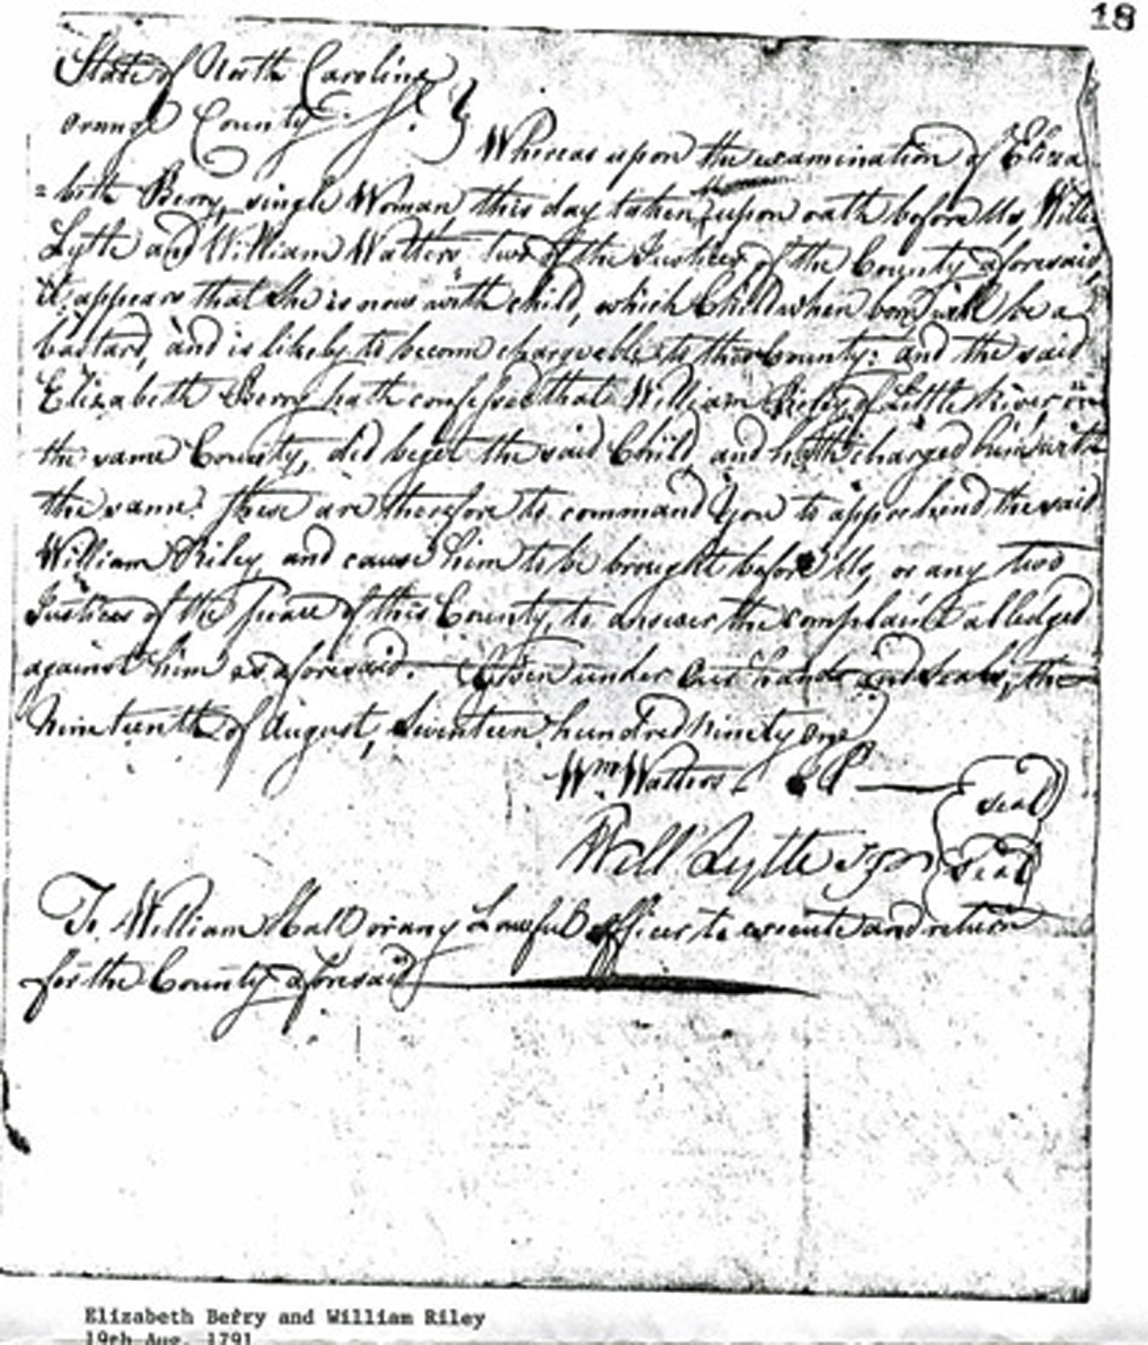 18
State of North Carolina
Orange County Sc. }
Whereas upon the examination of Eliza
= beth Berry, single Woman, this day taken upon oath before Us, Will:
Lytle and William Watters two of the Justices of the County aforesaid,
it appears that She is now with child, which Child when born will be a
bastard, and is likely to become chargeable to this County: and the said
Elizabeth Berry hath confessed that William Riley of Little River in
the same County, did beget the said Child, and hath charged him with
the same. These are therefore to command You to apprehend the said
William Riley, and cause him to be brought before Us, or any two
Justices of the Peace of this County, to answer the complaint alledged
against him as aforesaid. Given under Our hands and seals, the
Nineteenth of August, Seventeen hundred Ninety One
Wm. Watters J. P. seal
Will Lytle seal
To William Hall or any Lawful officer to execute and return
for the County aforesaid
Elizabeth Berry and William Riley
19th Aug. 1791